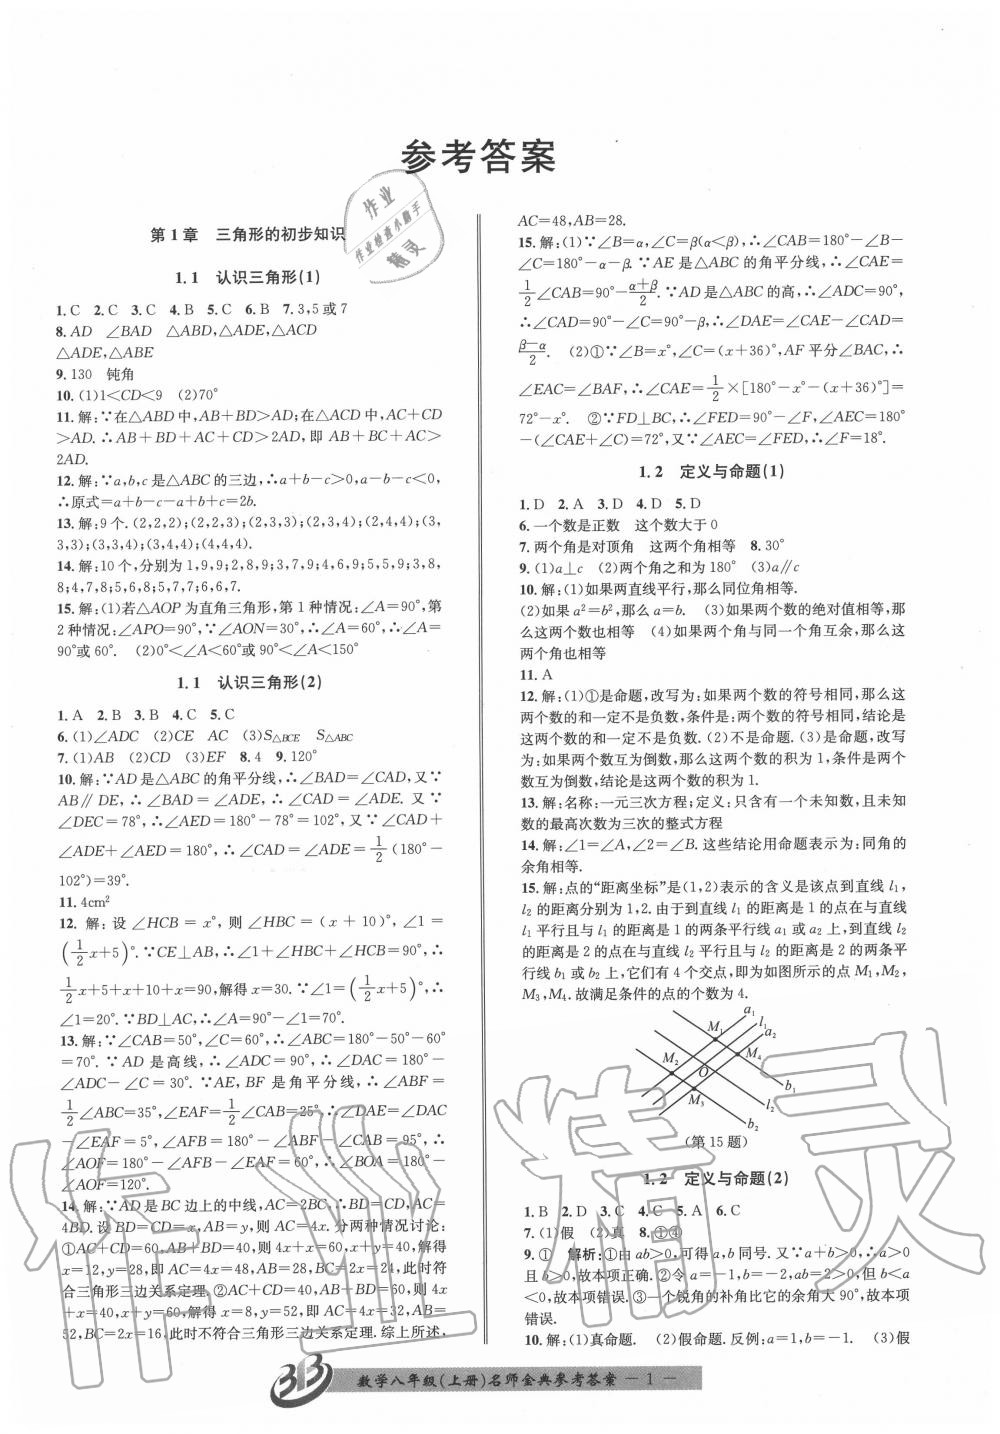 参考答案
作业
作业检查小助手
精灵
第1章 三角形的初步知识
1.1 认识三角形(1)
1.C 2.C 3.C 4.B 5.C 6.B 7.3,5或7
8.AD ∠BAD △ABD,△ADE,△ACD
△ADE,△ABE
9.130 钝角
10.(1)1<CD<9 (2)70°
11.解:∵在△ABD中,AB+BD>AD;在△ACD中,AC+CD
>AD.∴AB+BD+AC+CD>2AD,即AB+BC+AC>
2AD.
12.解:∵a,b,c是△ABC的三边,∴a+b-c>0,a-b-c<0,
∴原式=a+b-c-a+b+c=2b.
13.解:9个.(2,2,2);(2,2,3);(2,3,3);(2,3,4);(2,4,4);(3,
3,3);(3,3,4);(3,4,4);(4,4,4).
14.解:10个,分别为1,9,9;2,8,9;3,7,9;4,6,9;5,5,9;3,8,
8;4,7,8;5,6,8;5,7,7;6,6,7.
15.解:(1)若△AOP为直角三角形,第1种情况:∠A=90°,第
2种情况:∠APO=90°,∵∠AON=30°,∴∠A=60°,∴∠A=
90°或60°. (2)0°<∠A<60°或90°<∠A<150°
1.1 认识三角形(2)
1.A 2.B 3.B 4.C 5.C
6.(1)∠ADC (2)CE AC (3)S△BCE S△ABC
7.(1)AB (2)CD (3)EF 8.4 9.120°
10.解:∵AD是△ABC的角平分线,∴∠BAD=∠CAD,又∵
AB∥DE,∴∠BAD=∠ADE,∴∠CAD=∠ADE.又∵
∠DEC=78°,∴∠AED=180°-78°=102°,又∵∠CAD+
∠ADE+∠AED=180°,∴∠CAD=∠ADE=1/2(180°-
102°)=39°.
11.4cm²
12.解:设∠HCB=x°,则∠HBC=(x+10)°,∠1=
(1/2x+5)°.∵CE⊥AB,∴∠1+∠HBC+∠HCB=90°,∴
1/2x+5+x+10+x=90,解得x=30.∵∠1=(1/2x+5)°,∴
∠1=20°.∵BD⊥AC,∴∠A=90°-∠1=70°.
13.解:∵∠CAB=50°,∠C=60°,∴∠ABC=180°-50°-60°
=70°.∵AD是高线,∴∠ADC=90°,∴∠DAC=180°-
∠ADC-∠C=30°.∵AE,BF是角平分线,∴∠ABF=
1/2∠ABC=35°,∠EAF=1/2∠CAB=25°,∴∠DAE=∠DAC
-∠EAF=5°,∠AFB=180°-∠ABF-∠CAB=95°,∴
∠AOF=180°-∠AFB-∠EAF=60°,∴∠BOA=180°-
∠AOF=120°.
14.解:∵AD是BC边上的中线,AC=2BC,∴BD=CD,AC=
4BD.设BD=CD=x,AB=y,则AC=4x.分两种情况讨论:
①AC+CD=60,AB+BD=40,则4x+x=60,x+y=40,解得
x=12,y=28,即AC=4x=48,AB=28,BC=2x=24,此时符
合三角形三边关系定理.②AC+CD=40,AB+BD=60,则4x
+x=40,x+y=60,解得x=8,y=52,即AC=4x=32,AB=
52,BC=2x=16,此时不符合三角形三边关系定理.综上所述,
AC=48,AB=28.
15.解:(1)∵∠B=α,∠C=β(α<β),∴∠CAB=180°-∠B-
∠C=180°-α-β.∵AE是△ABC的角平分线,∴∠CAE=
1/2∠CAB=90°-(α+β)/2.∵AD是△ABC的高,∴∠ADC=90°,
∴∠CAD=90°-∠C=90°-β,∴∠DAE=∠CAE-∠CAD=
(β-α)/2. (2)①∵∠B=x°,∠C=(x+36)°,AF平分∠BAC,∴
∠EAC=∠BAF,∴∠CAE=1/2×[180°-x°-(x+36)°]=
72°-x°. ②∵FD⊥BC,∴∠FED=90°-∠F,∠AEC=180°
-(∠CAE+∠C)=72°,又∵∠AEC=∠FED,∴∠F=18°.
1.2 定义与命题(1)
1.D 2.A 3.D 4.D 5.D
6.一个数是正数 这个数大于0
7.两个角是对顶角 这两个角相等 8.30°
9.(1)a⊥c (2)两个角之和为180° (3)a∥c
10.解:(1)如果两直线平行,那么同位角相等.
(2)如果a²=b²,那么a=b. (3)如果两个数的绝对值相等,那
么这两个数也相等 (4)如果两个角与同一个角互余,那么这
两个角也相等
11.A
12.解:(1)①是命题,改写为:如果两个数的符号相同,那么这
两个数的和一定不是负数,条件是:两个数的符号相同,结论是
这两个数的和一定不是负数.(2)不是命题.(3)是命题,改写
为:如果两个数互为倒数,那么这两个数的积为1,条件是两个
数互为倒数,结论是这两个数的积为1.
13.解:名称:一元三次方程;定义:只含有一个未知数,且未知
数的最高次数为三次的整式方程
14.解:∠1=∠A,∠2=∠B.这些结论用命题表示为:同角的
余角相等.
15.解:点的“距离坐标”是(1,2)表示的含义是该点到直线l₁,
l₂的距离分别为1,2.由于到直线l₁的距离是1的点在与直线
l₁平行且与l₁的距离是1的两条平行线a₁或a₂上,到直线l₂
的距离是2的点在与直线l₂平行且与l₂的距离是2的两条平
行线b₁或b₂上,它们有4个交点,即为如图所示的点M₁,M₂,
M₃,M₄.故满足条件的点的个数为4.
a₁
M₁ l₁
a₂
M₂ M₄
O
b₁
M₃ l₂
b₂
(第15题)
1.2 定义与命题(2)
1.B 2.D 3.C 4.C 5.A 6.C
7.(1)假 (2)真 8.①④
9.① 解析:①由ab>0,可得a,b同号.又∵a+b>0,∴a>0
且b>0,故本项正确.②令a=-1,b=-2,ab=2>0,但b<a
<0,故本项错误.③一个锐角的补角比它的余角大90°,故本项
错误.
10.解:(1)真命题. (2)假命题.反例:a=1,b=-1. (3)假
数学八年级(上册)名师金典参考答案 -1-
作业精灵